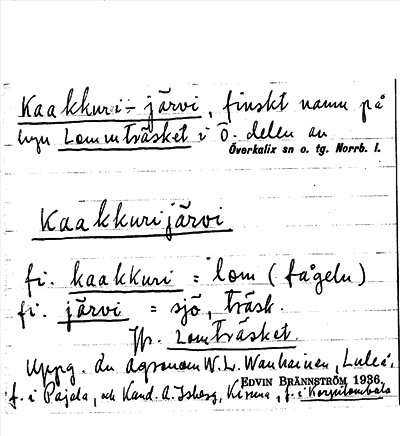 Kaakkuri-järvi, finskt namn på
byn Lommträsket i ö. delen av
Överkalix sn o. tg. Norrb. l.
Kaakkurijärvi
fi. kaakkuri = lom (fågeln)
fi. järvi = sjö, träsk.
Jfr. Lomträsket
Uppg. av Agronom W. Wanhainen, Luleå,
EDVIN BRÄNNSTRÖM 1936.
f. i Pajala, och Kand. A. Isberg, Kiruna, f. i Korpilombolo